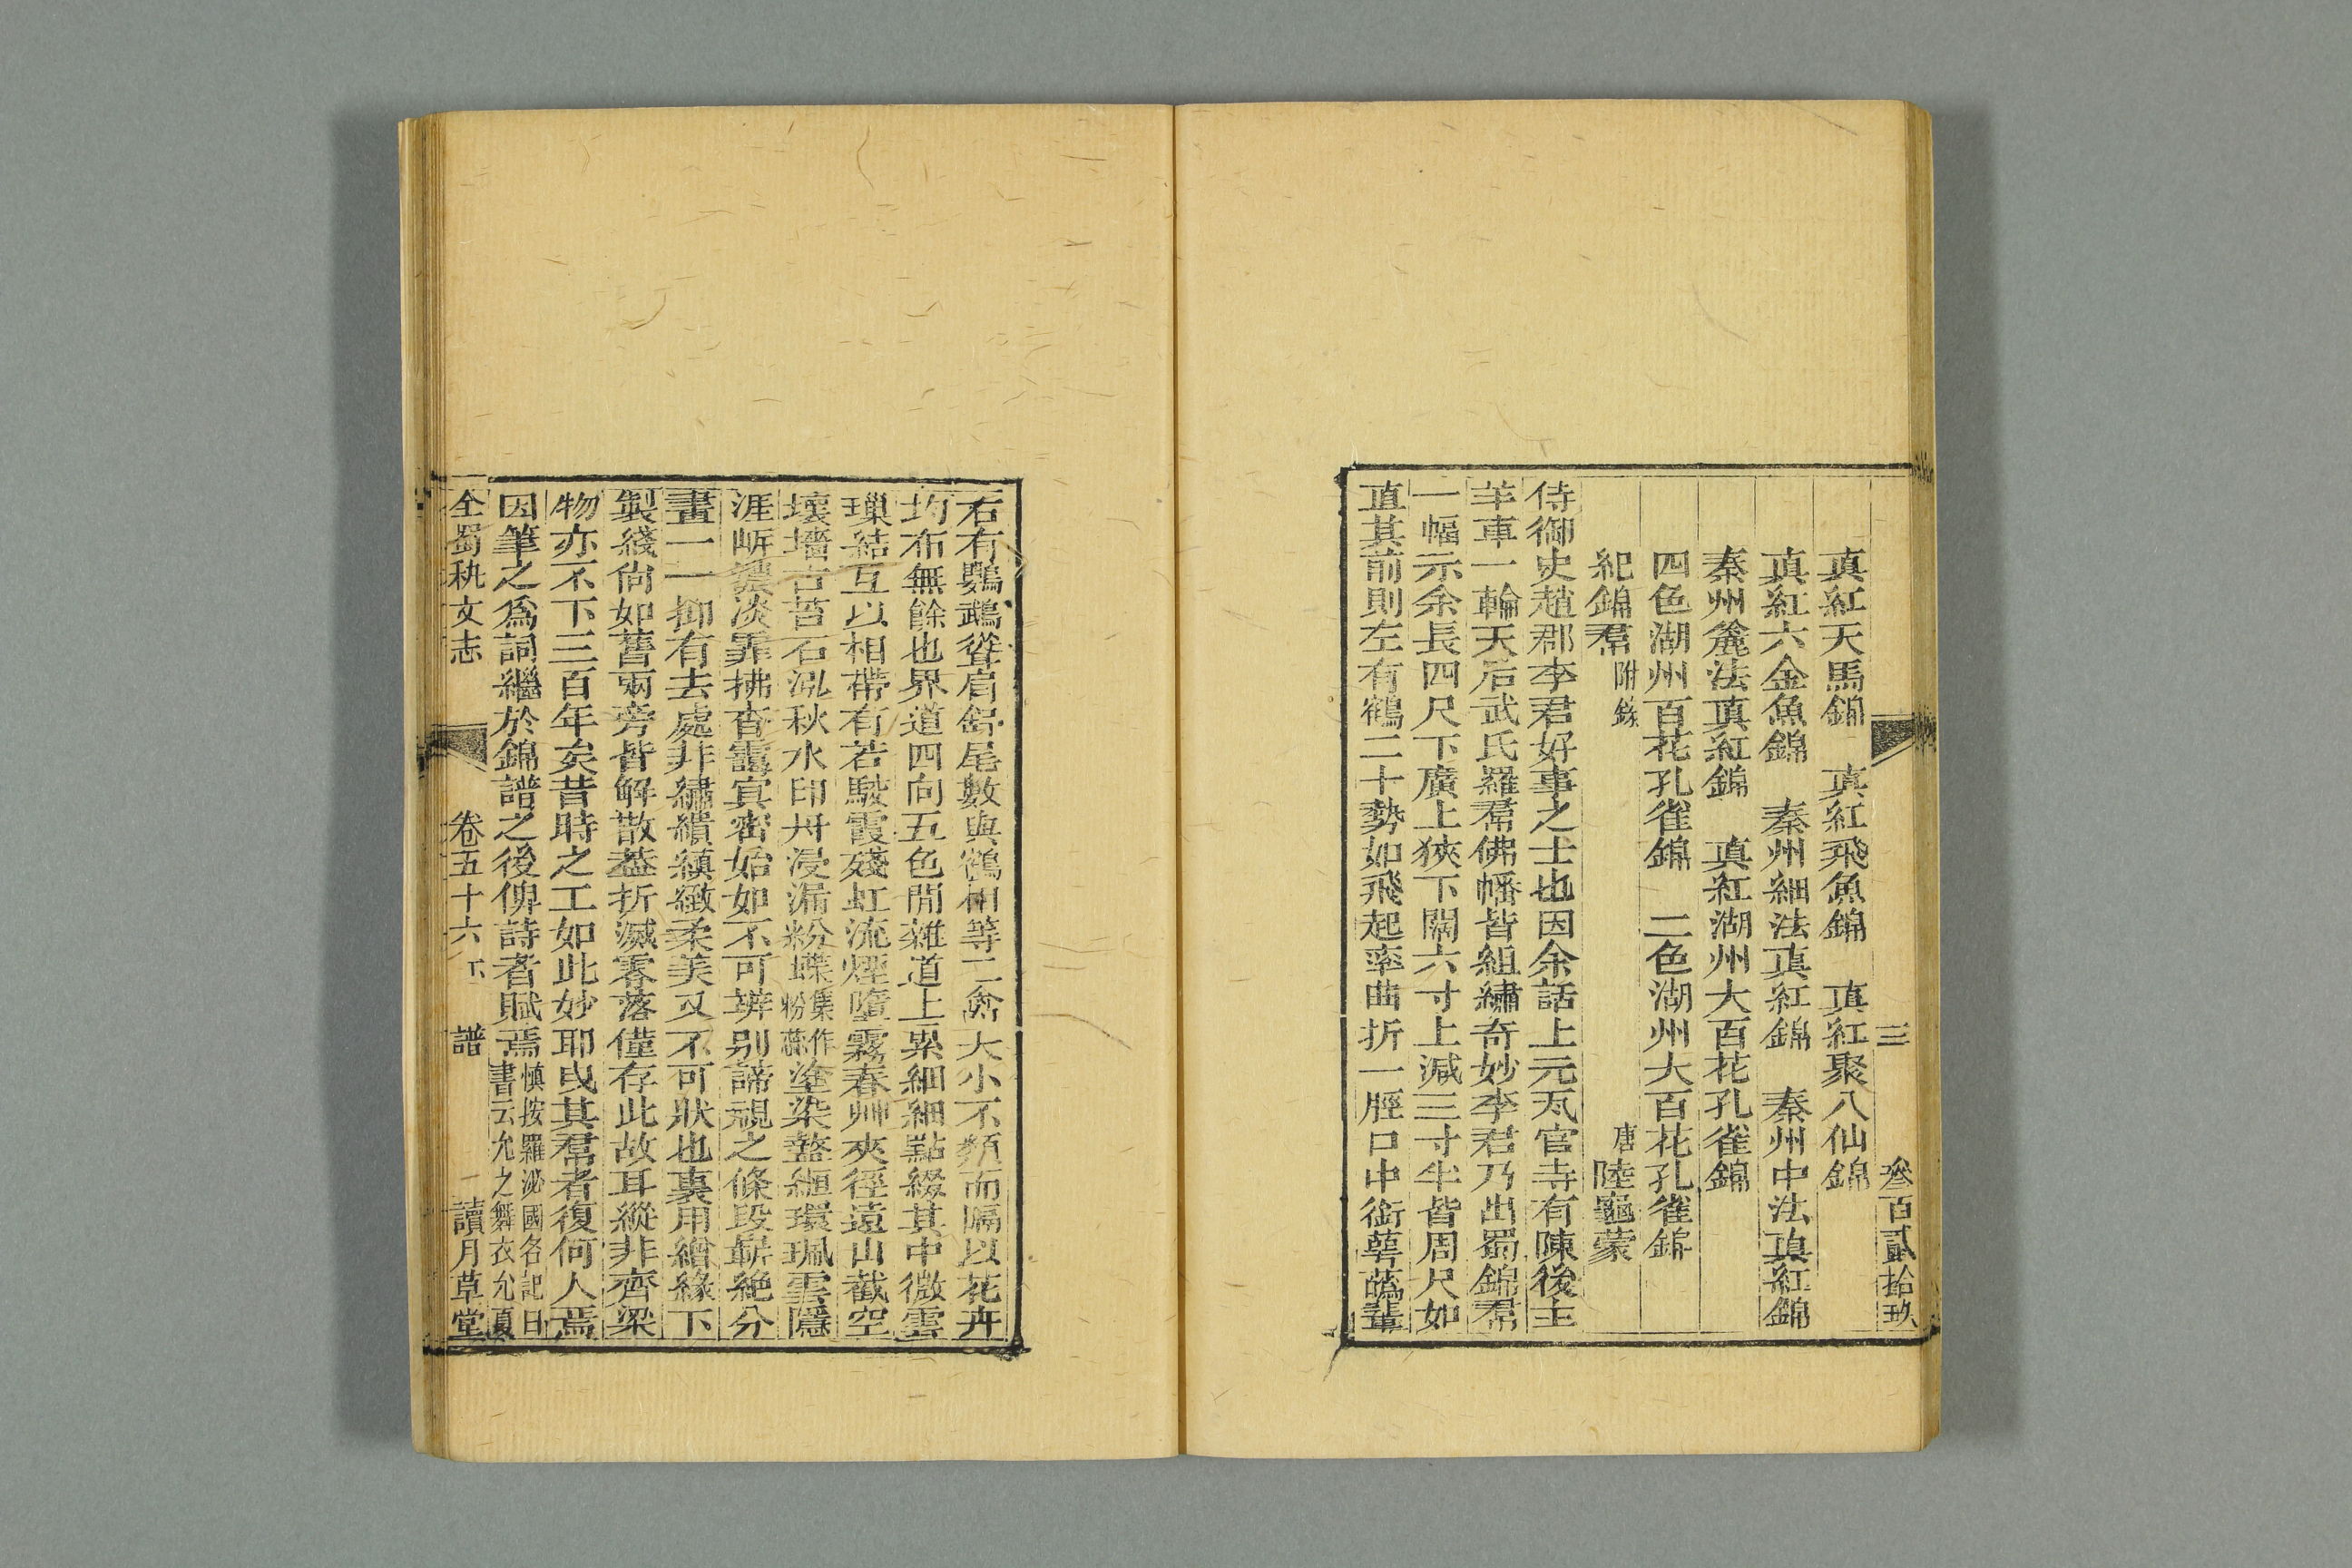 三　叄百貳拾玖
真紅天馬錦　真紅飛魚錦　真紅聚八仙錦
真紅六金魚錦　秦州細法真紅錦　秦州中法真紅錦
秦州麄法真紅錦　真紅湖州大百花孔雀錦
四色湖州百花孔雀錦　二色湖州大百花孔雀錦
紀錦裠附錄　唐陸龜蒙
侍御史趙郡李君好事之士也因余話上元瓦官寺有陳後主
羊車一輪天后武氏羅裠佛幡皆組繡奇妙李君乃出蜀錦裠
一幅示余長四尺下廣上狹下闊六寸上減三寸半皆周尺如
直其前則左有鶴二十勢如飛起率曲折一脛口中銜蕚蘤輩
右有鸚鵡聳肩舒尾數與鶴相等二禽大小不類而隔以花卉
均布無餘也界道四向五色閒雜道上累細細點綴其中微雲
璅結互以相帶有若駮霞殘虹流煙墮霧春艸夾徑遠山截空
壞墻古苔石泓秋水印丹浸漏粉蝶集作粉蘂塗染盭緪環珮雲隱
涯岸濃淡霏拂杳靄冥密始如不可辨別諦視之條段斬絕分
畫一一抑有去處非繡繢縝緻柔美又不可狀也裏用繒緣下
製綫尙如舊兩旁皆解散葢折滅零落僅存此故耳縱非齊梁
物亦不下三百年矣昔時之工如此妙耶曳其裠者復何人焉
因筆之爲詞繼於錦譜之後俾詩者賦焉慎按羅泌國名記曰書云允之舞衣允夏
全蜀秇文志　卷五十六下　譜　一　讀月草堂